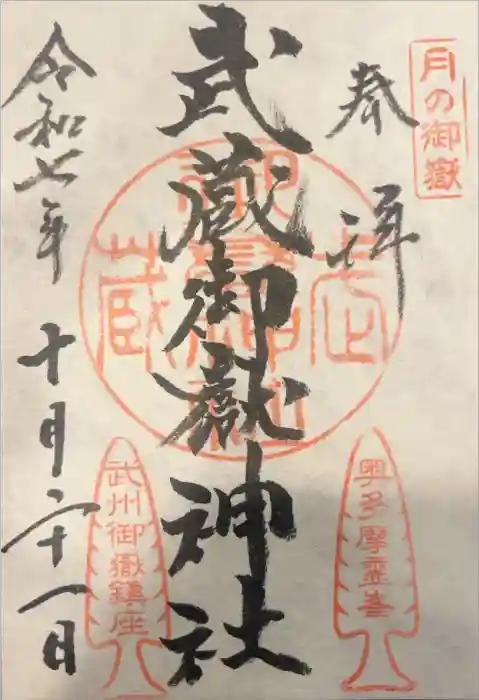 月の御嶽
奉拝
武蔵御嶽神社
令和七年十月二十一日
奥多摩霊峯
武州御嶽鎮座